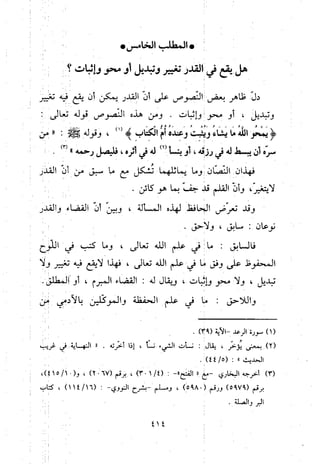 • المطلب الخامس •
هل يقع في القدر تغيير وتبديل أو محو وإثبات ؟
دلّ ظاهر بعض النّصوص على أنّ القدر يمكن أن يقع فيه تغيير
وتبديل ، أو محو وإثبات . ومن هذه النّصوص قوله تعالى :
﴿ يَمْحُو اللَّهُ مَا يَشَاءُ وَيُثْبِتُ وَعِندَهُ أُمُّ الْكِتَابِ ﴾ (١) ، وقوله ﷺ : « من
سرّه أن يبسط له في رزقه ، أو ينسأ (٢) له في أثره ، فليصل رحمه » (٣) .
فهذان النصّان وما يماثلهما تُشكل مع ما سبق من أنّ القدر
لايتغير ، وأنّ القلم قد جفّ بما هو كائن .
وقد تعرّض الحافظ لهذه المسألة ، وبينّ أنّ القضاء والقدر
نوعان : سابق ، ولاحق .
فالسابق : ما في علم الله تعالى ، وما كتب في اللّوح
المحفوظ على وفق ما في علم الله تعالى ، فهذا لايقع فيه تغيير ولا
تبديل ، ولا محو وإثبات ، ويقال له : القضاء المبرم ، أو المطلق .
واللاحق : ما في علم الحفظة والموكّلين بالآدمي من
(١) سورة الرعد -الآية (٣٩) .
(٢) بمعنى يُؤخّر ، يقال : نسأت الشيء نسأً ، إذا أخّرته . « النهـاية في غريب
الحديث » : (٤٤/٥) .
(٣) أخرجه البخاري -مع « الفتح »- : (٣٠١/٤) ، برقم (٢٠٦٧) ، و(٤١٥/١٠)،
برقم (٥٩٧٩) ورقم (٥٩٨٠) ، ومسلم -بشرح النووي- : (١١٤/١٦) ، كتاب
البر والصلة .
٤١٤